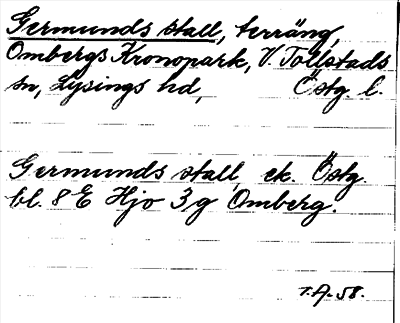 Germunds stall, terräng,
Ombergs Kronopark, V. Tollstads
sn, Lysings hd, Östg l.
Germunds stall, ek. Östg.
bl. 8 E Hjo 3 g Omberg.
T.A. 58.